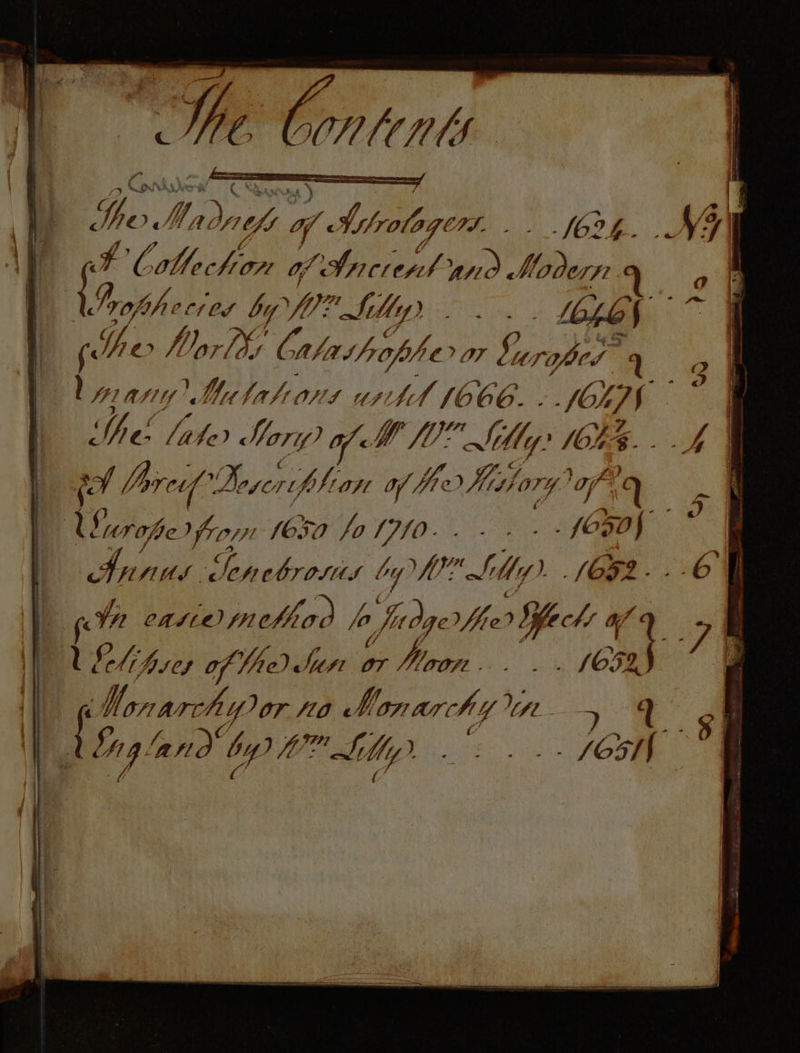 The Contents
(Carleton (George)
The Madness of Astrologers. . . . 1624. . . No 1
A Collection of Ancient and Modern
Prophecies by Wm Lilly . . . . . 1646} 2
The Worlds Catashophe or Europes
many Mutations untill 1666. . . 1647} 3
The late Story of Mr Wm Lilly. 1648. . . 4
A Breif Description of the History of
Europe from 1650 to 1710. . . . . . 1650} 5
Annus Tenebrosus by Wm Lilly. . 1652. . . 6
An easie method to Judge the Effects of
Eclipses of the Sun or Moon. . . . . 1652} 7
Monarchy or no Monarchy in
England by Wm Lilly. . . . . . 1651} 8